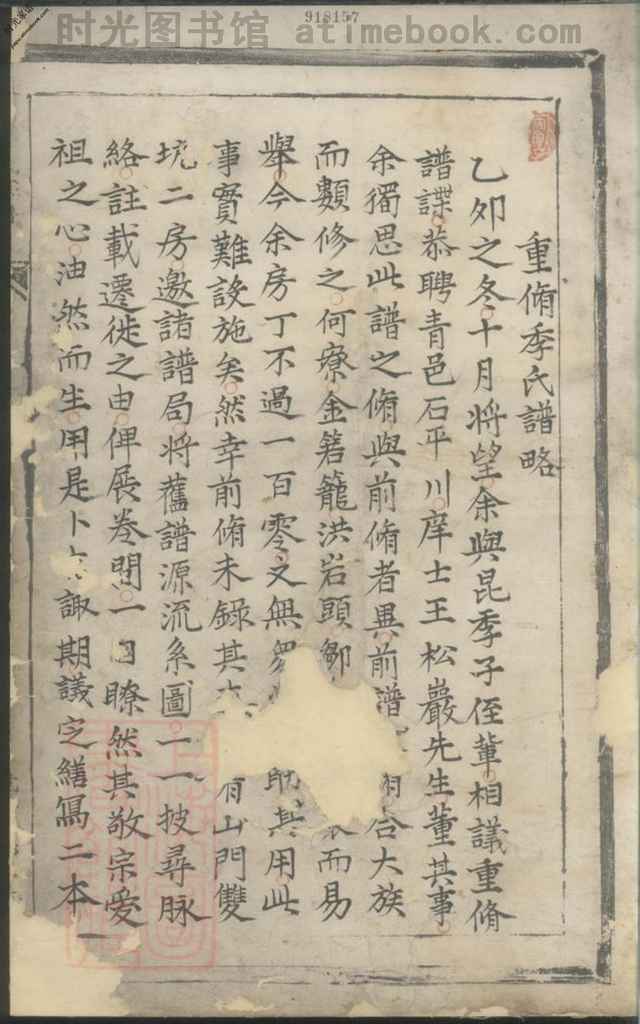 918157
时光图书馆 atimebook.com
重脩季氏譜略
乙夘之冬十月将望余與昆季子侄軰相議重脩
譜諜恭聘青邑石平川庠士王松巖先生董其事
余獨思此譜之脩與前脩者異前譜合大族
而數修之何寮金砦籠洪岩頭鄒而易
舉今余房丁不過一百零文無其用此
事實難設施矣然幸前脩未錄其山門雙
坑二房邀諸譜局将舊譜源流系圖一一披尋脉
絡註載遷徙之由俾展卷間一目瞭然其敬宗愛
祖之心油然而生用是卜諏期議定繕寫二本一